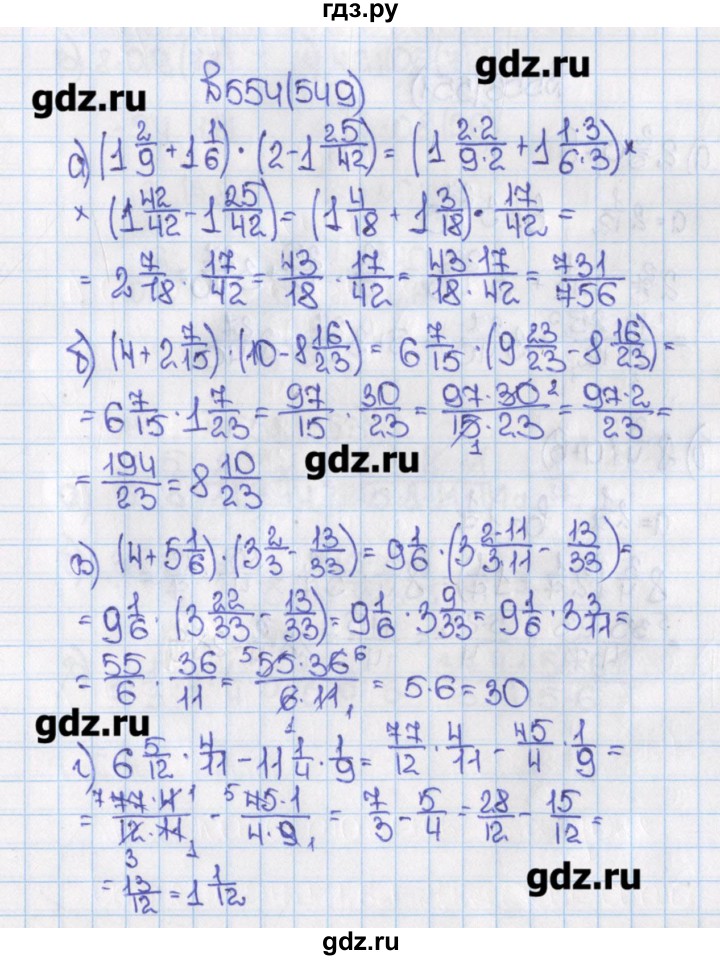 гдз.ру
gdz.ru
gdz.ru
№554(549)
а) (1 2/9 + 1 1/6) · (2 - 1 25/42) = (1 2·2/9·2 + 1 1·3/6·3) ×
× (1 42/42 - 1 25/42) = (1 4/18 + 1 3/18) · 17/42 =
= 2 7/18 · 17/42 = 43/18 · 17/42 = 43·17/18·42 = 731/756
б) (4 + 2 7/15) · (10 - 8 16/23) = 6 7/15 · (9 23/23 - 8 16/23) =
= 6 7/15 · 1 7/23 = 97/15 · 30/23 = 97·30 2/15 1·23 = 97·2/23 =
gdz.ru
= 194/23 = 8 10/23
в) (4 + 5 1/6) · (3 2/3 - 13/33) = 9 1/6 · (3 2·11/3·11 - 13/33) =
= 9 1/6 · (3 22/33 - 13/33) = 9 1/6 · 3 9/33 = 9 1/6 · 3 3/11 =
= 55/6 · 36/11 = 5 55·36 6/6 1·11 1 = 5·6 = 30
gdz.ru
г) 6 5/12 · 4/11 - 11 1/4 · 1/9 = 77/12 · 4/11 - 45/4 · 1/9 =
= 7 77·4 1/12 3·11 1 - 5 45·1/4·9 1 = 7/3 - 5/4 = 28/12 - 15/12 =
= 13/12 = 1 1/12
gdz.ru
gdz.ru